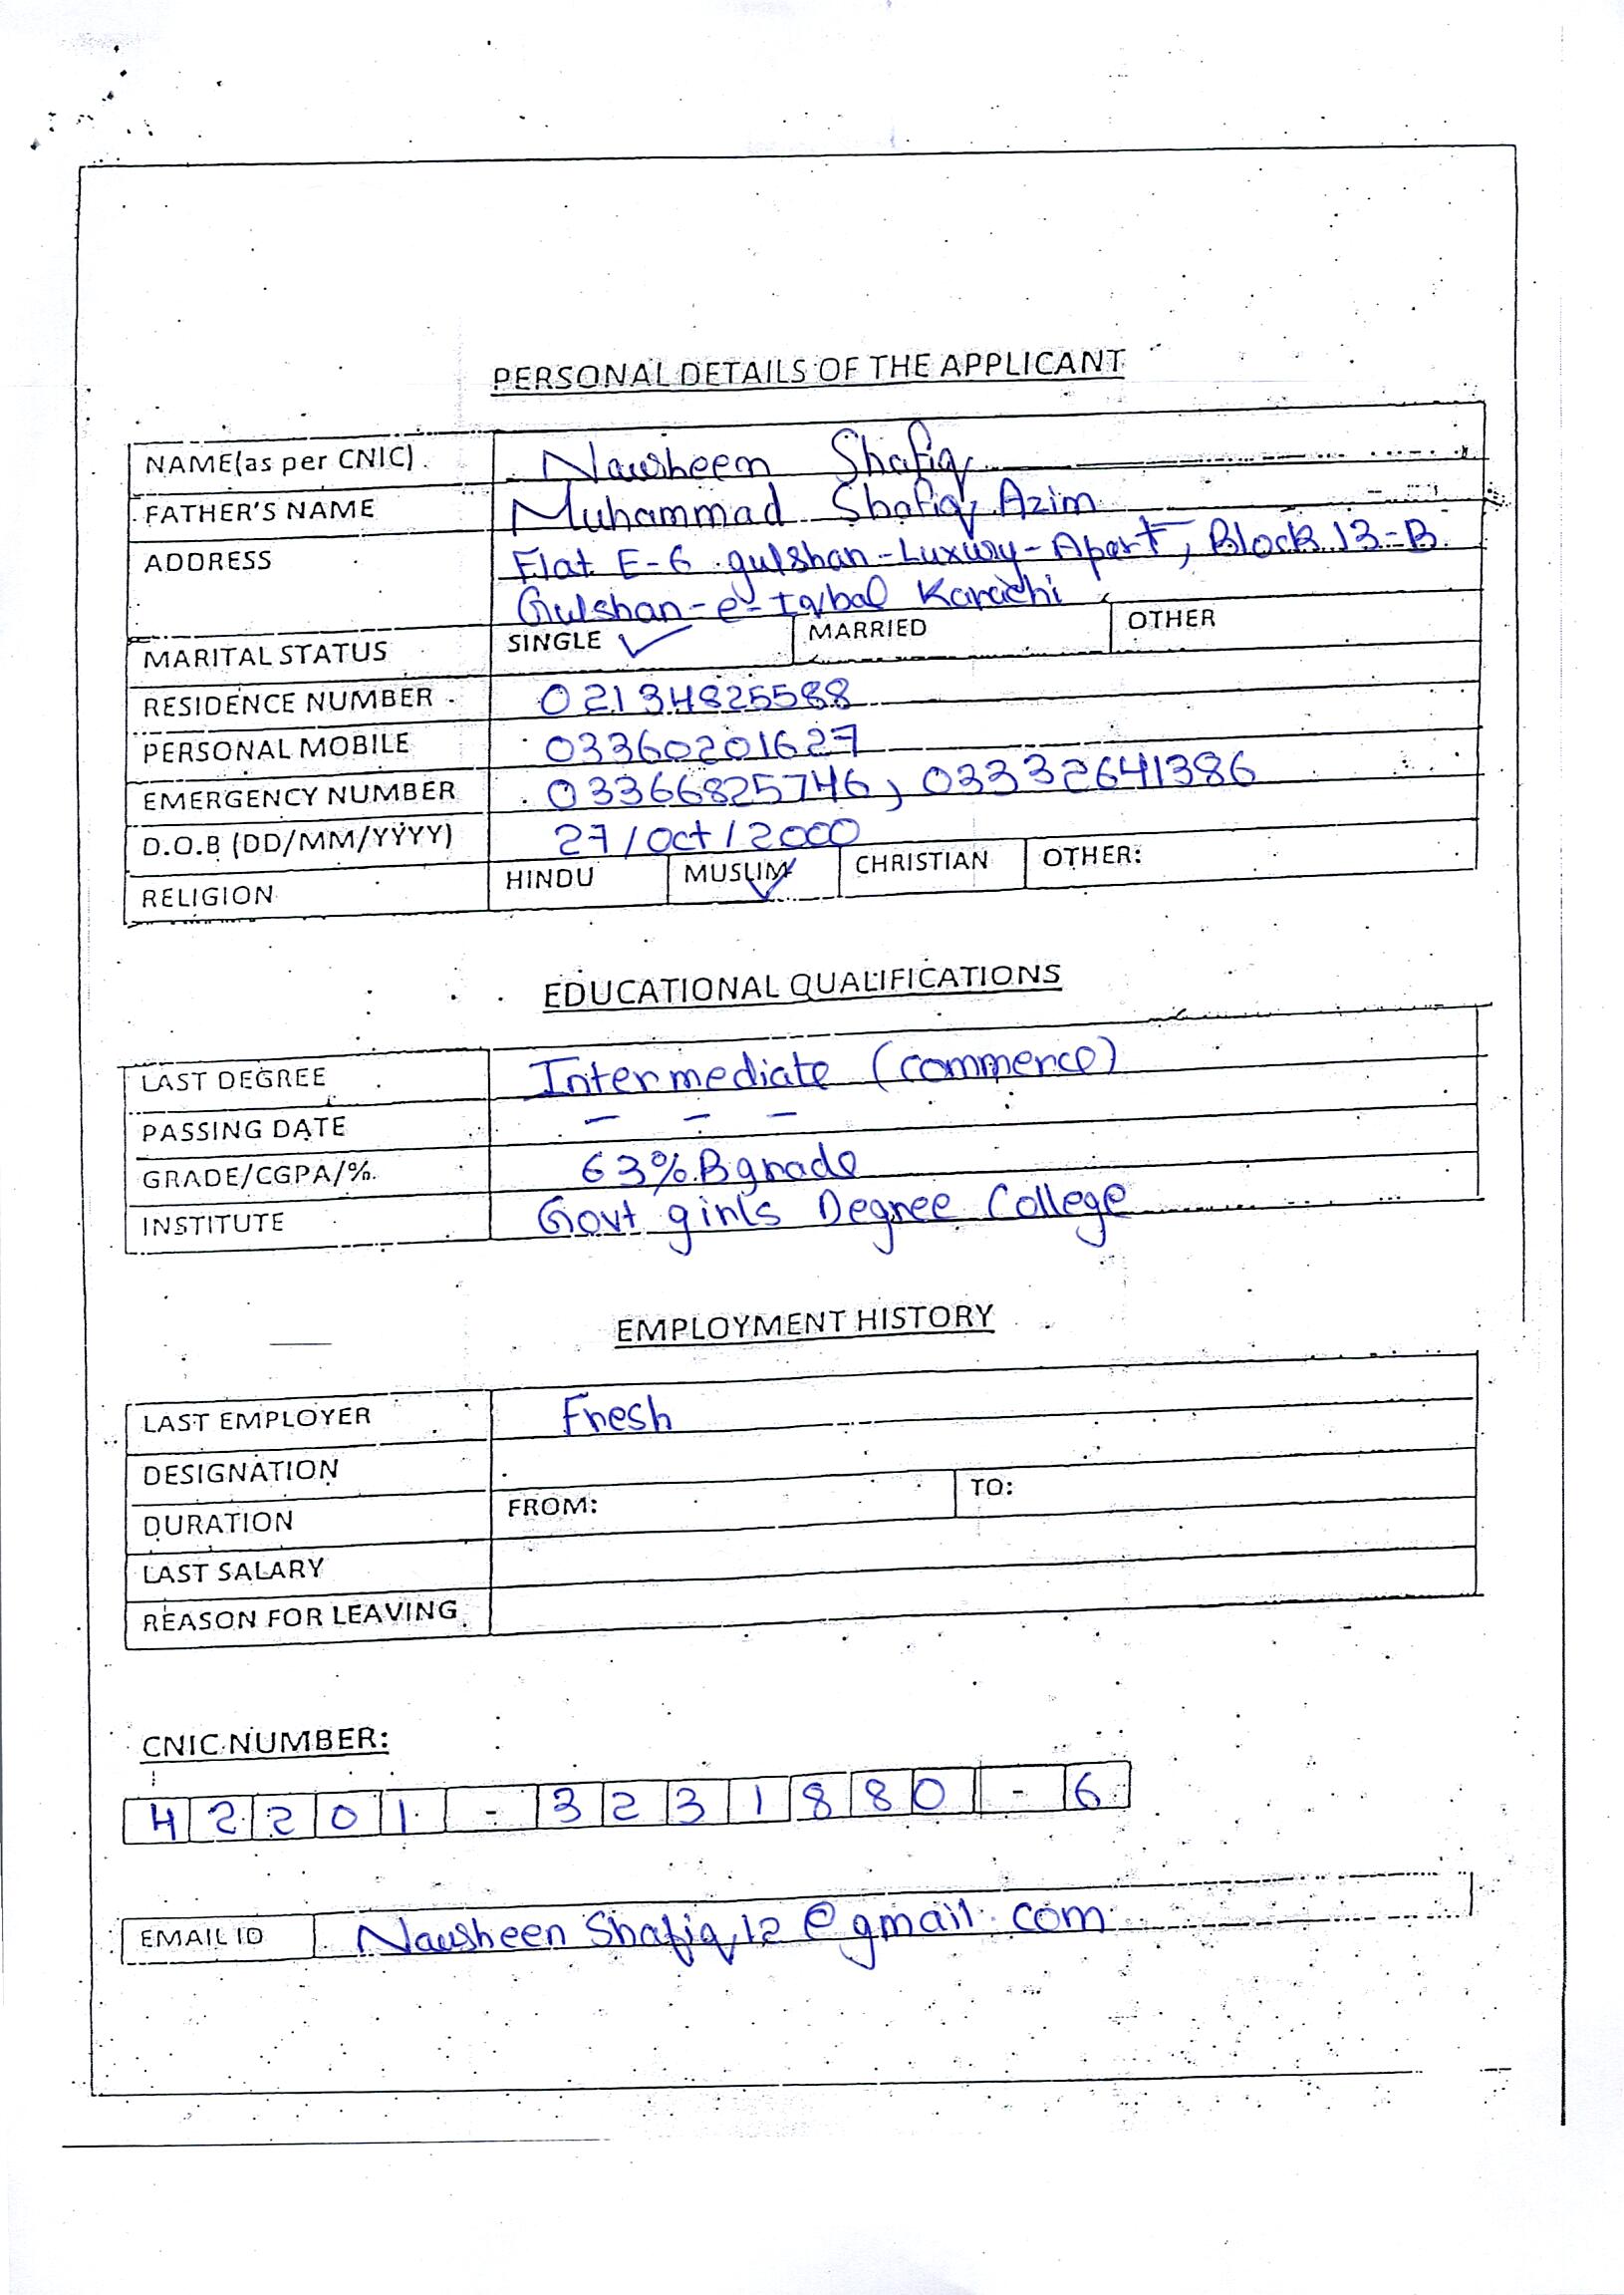 PERSONAL DETAILS OF THE APPLICANT
NAME(as per CNIC) Nawsheen Shafiq
FATHER'S NAME Muhammad Shafiq Azim
ADDRESS Flat E-6 gulshan-Luxury-Apart, Block 13-B
Gulshan-e-Iqbal Karachi
MARITAL STATUS SINGLE ✓ MARRIED OTHER
RESIDENCE NUMBER 02134825588
PERSONAL MOBILE 03360201627
EMERGENCY NUMBER 03366825746, 03332641386
D.O.B (DD/MM/YYYY) 27/Oct/2000
RELIGION HINDU MUSLIM ✓ CHRISTIAN OTHER:
EDUCATIONAL QUALIFICATIONS
LAST DEGREE Intermediate (commerce)
PASSING DATE - - -
GRADE/CGPA/% 63% B grade
INSTITUTE Govt girls Degree College
EMPLOYMENT HISTORY
LAST EMPLOYER Fresh
DESIGNATION
DURATION FROM: TO:
LAST SALARY
REASON FOR LEAVING
CNIC NUMBER:
42201-3231880-6
EMAIL ID Nawsheen Shafiq12@gmail.com